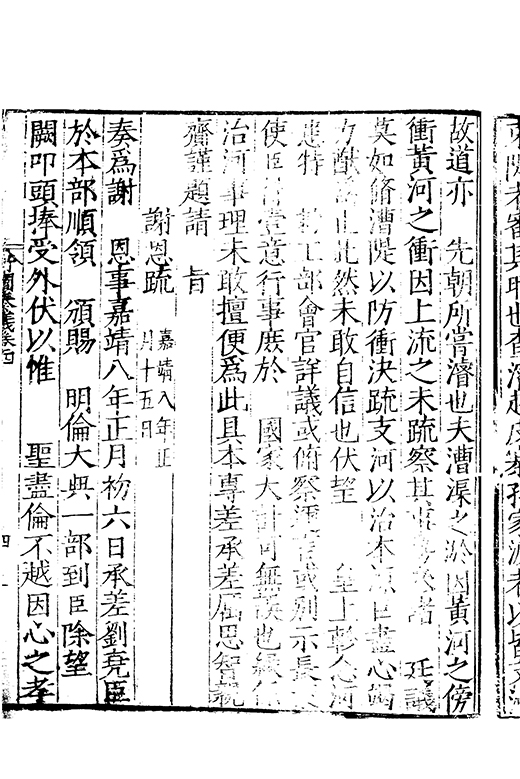 故道亦　先朝所嘗濬也夫漕渠之淤因黃河之傍
衝黃河之衝因上流之未疏察其事勢 者　廷議
莫如脩漕隄以防衝決疏支河以治本源臣盡心竭
力 然未敢自信也伏望　皇上彰念河
患特　勑工部會官詳議或俯察 官或別示長
使臣 壹意行事庶於　國家大計可無誤也緣係
治河事理未敢擅便爲此具本專差承差屈思智親
齎謹題請　旨
謝恩疏　嘉靖八年正月十五日
奏爲謝　恩事嘉靖八年正月初六日承差劉堯臣
於本部順領　頒賜　明倫大典一部到臣除望
闕叩頭捧受外伏以惟　聖盡倫不越因心之孝
四